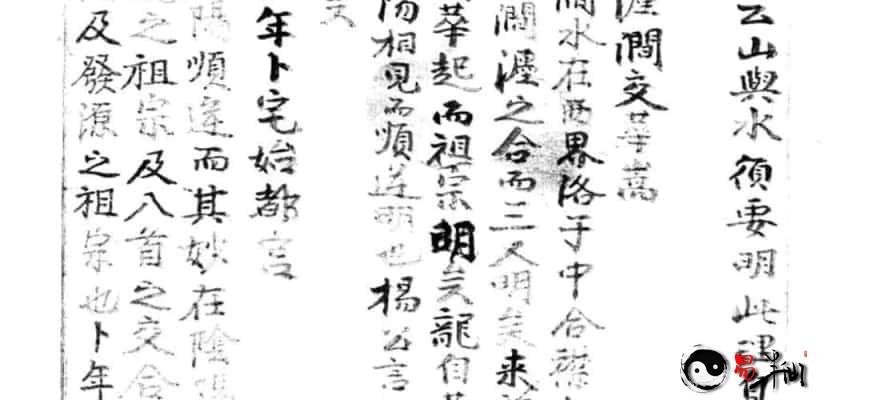 云山與水須要明此理自
瀍澗交華嵩
澗水在西界洛于中合襟
澗瀍之合而三叉明矣来
華起而祖宗明矣龍自
陽相見而順逆明也楊公言
年卜宅始都言
陽順逆而其妙在陰陽
之祖宗及八首之交合
及發源之祖宗也卜年
易